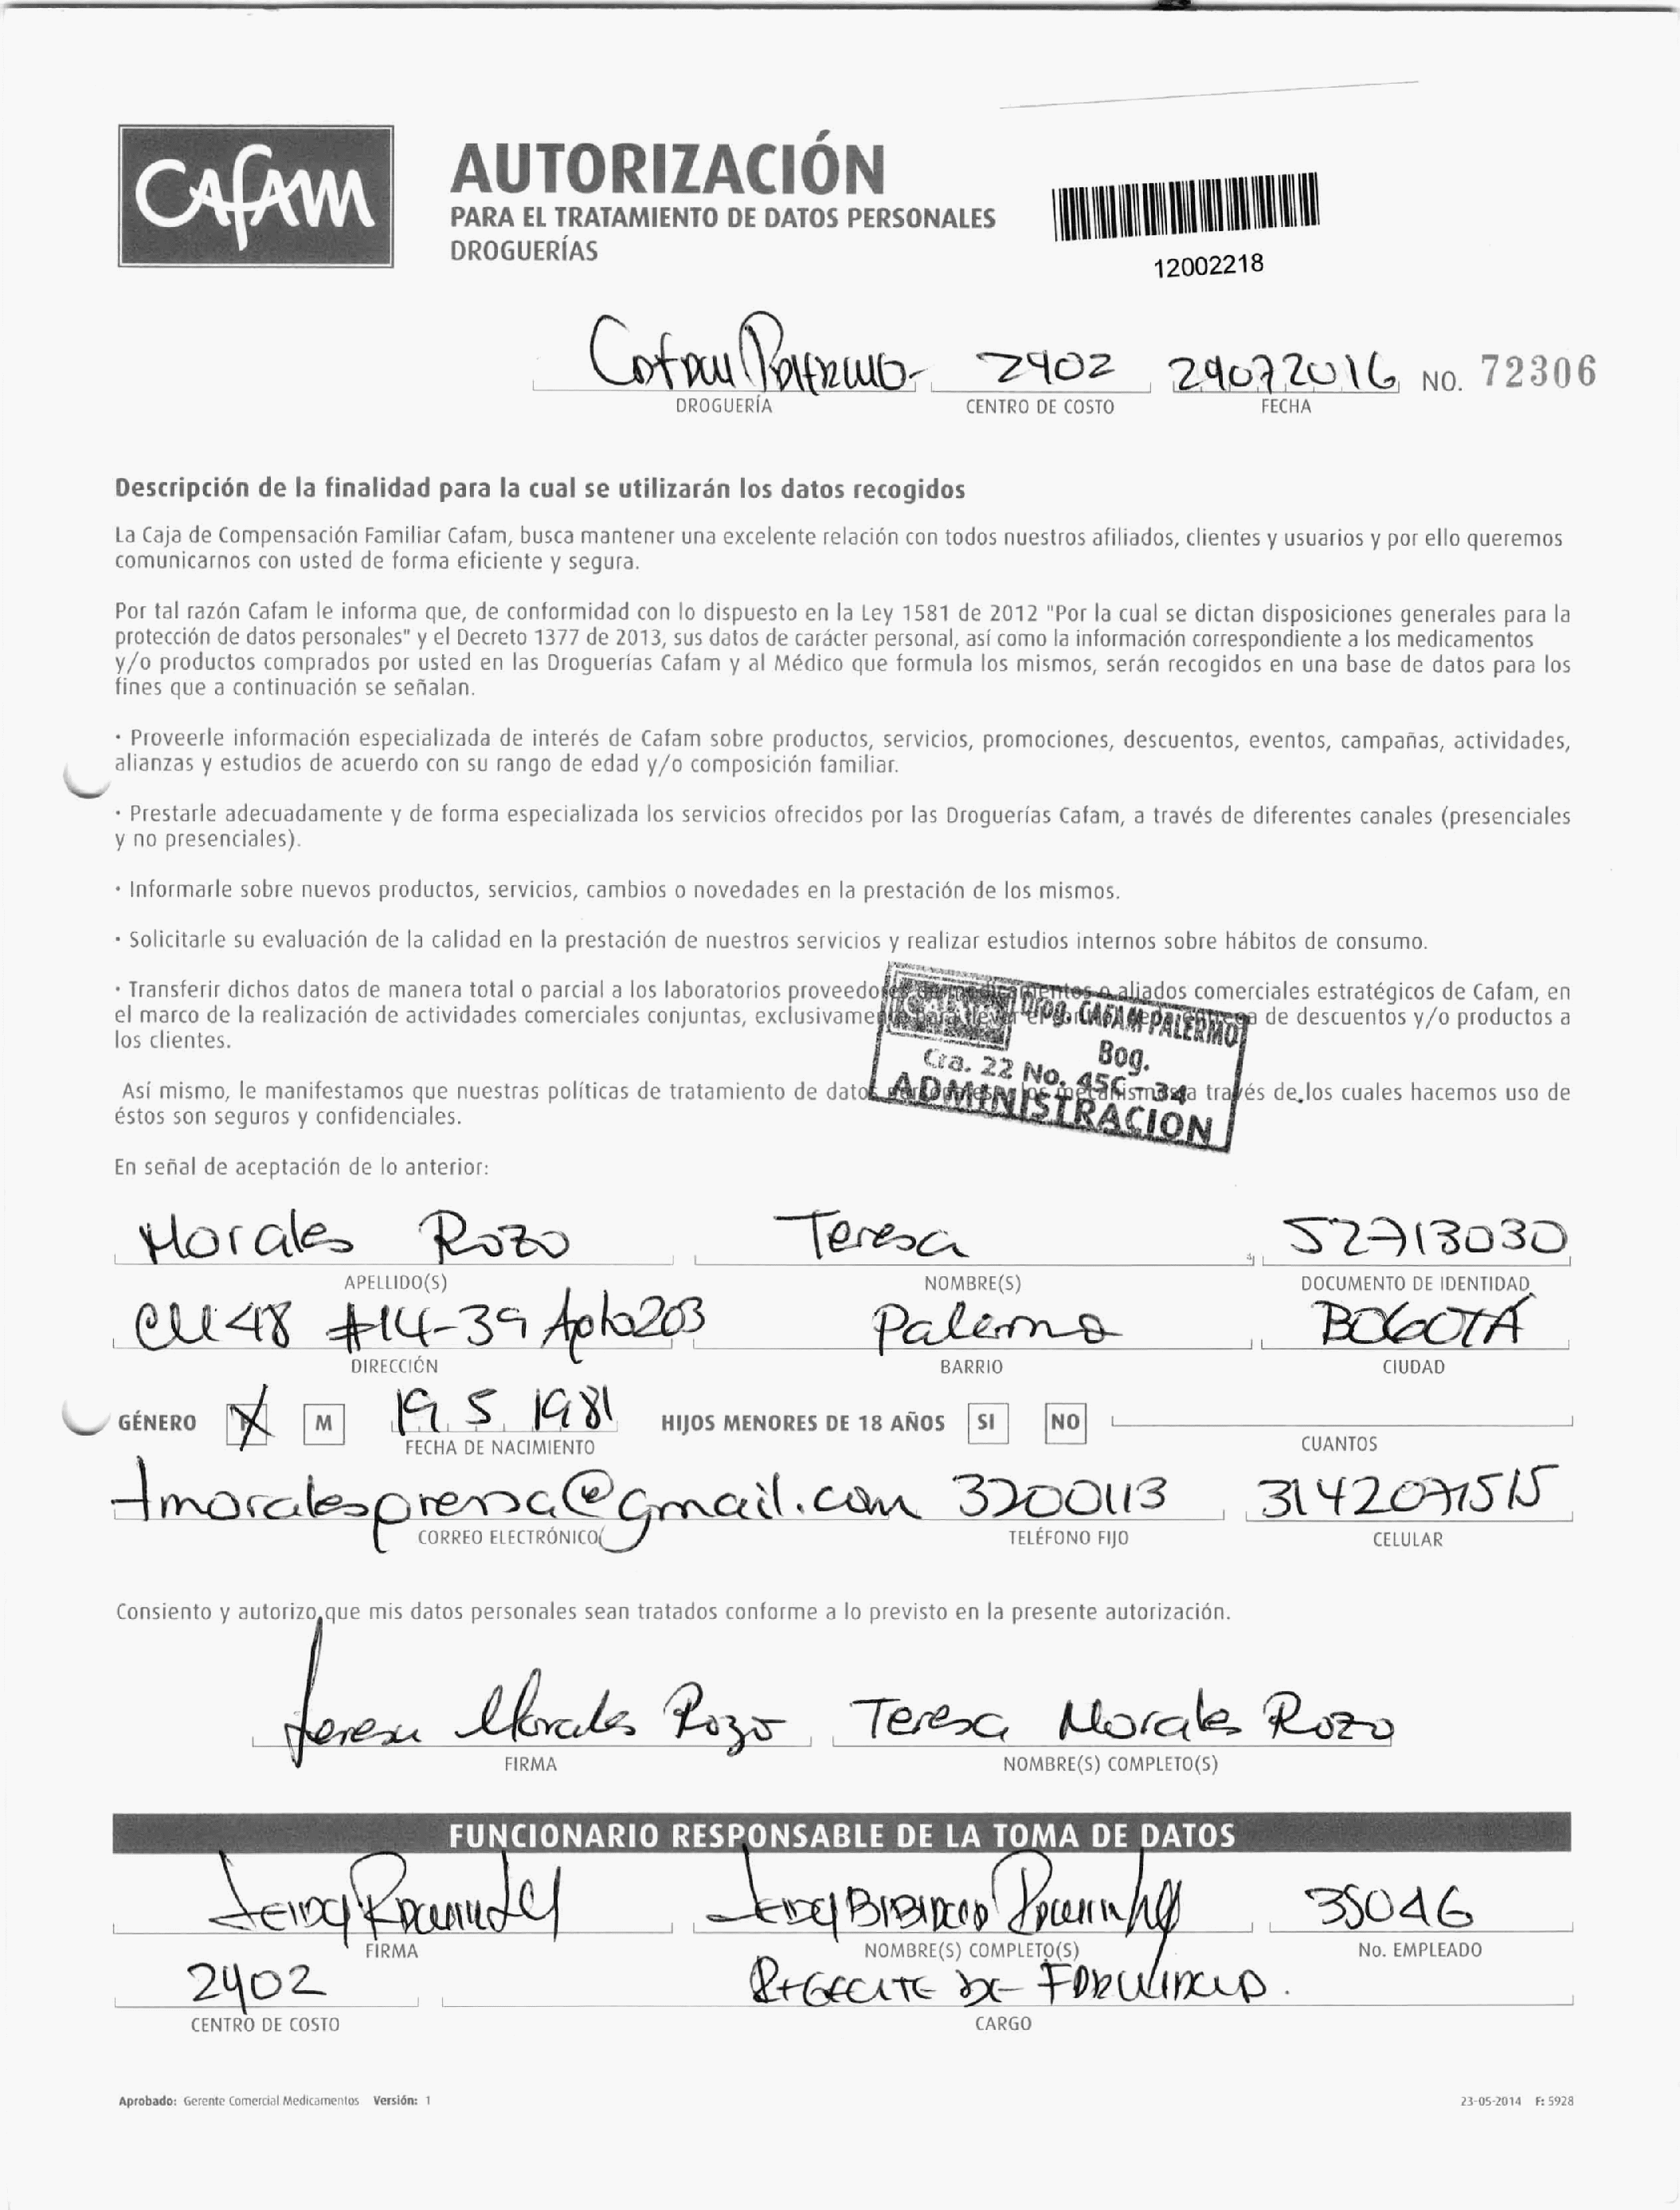 CAFAM
AUTORIZACIÓN
PARA EL TRATAMIENTO DE DATOS PERSONALES
DROGUERÍAS
12002218
Cafam Palermo 2902 29072016 NO. 72306
DROGUERÍA CENTRO DE COSTO FECHA
Descripción de la finalidad para la cual se utilizarán los datos recogidos
La Caja de Compensación Familiar Cafam, busca mantener una excelente relación con todos nuestros afiliados, clientes y usuarios y por ello queremos
comunicarnos con usted de forma eficiente y segura.
Por tal razón Cafam le informa que, de conformidad con lo dispuesto en la Ley 1581 de 2012 "Por la cual se dictan disposiciones generales para la
protección de datos personales" y el Decreto 1377 de 2013, sus datos de carácter personal, así como la información correspondiente a los medicamentos
y/o productos comprados por usted en las Droguerías Cafam y al Médico que formula los mismos, serán recogidos en una base de datos para los
fines que a continuación se señalan.
· Proveerle información especializada de interés de Cafam sobre productos, servicios, promociones, descuentos, eventos, campañas, actividades,
alianzas y estudios de acuerdo con su rango de edad y/o composición familiar.
· Prestarle adecuadamente y de forma especializada los servicios ofrecidos por las Droguerías Cafam, a través de diferentes canales (presenciales
y no presenciales).
· Informarle sobre nuevos productos, servicios, cambios o novedades en la prestación de los mismos.
· Solicitarle su evaluación de la calidad en la prestación de nuestros servicios y realizar estudios internos sobre hábitos de consumo.
· Transferir dichos datos de manera total o parcial a los laboratorios aliados comerciales estratégicos de Cafam, en
el marco de la realización de actividades comerciales conjuntas, de descuentos y/o productos a
los clientes.
CAFAM PALERMO
Bog.
Cra. 22 No. 45C - 34
ADMINISTRACION
Así mismo, le manifestamos que nuestras políticas de tratamiento de a través de los cuales hacemos uso de
éstos son seguros y confidenciales.
En señal de aceptación de lo anterior:
Morales Rozo Teresa 52713030
APELLIDO(S) NOMBRE(S) DOCUMENTO DE IDENTIDAD
Cll 48 #14-39 Apto 203 Palermo BOGOTÁ
DIRECCIÓN BARRIO CIUDAD
GÉNERO X M 19 5 1981 HIJOS MENORES DE 18 AÑOS SI NO
FECHA DE NACIMIENTO CUANTOS
tmoralesprensa@gmail.com 3200113 3142071515
CORREO ELECTRÓNICO TELÉFONO FIJO CELULAR
Consiento y autorizo que mis datos personales sean tratados conforme a lo previsto en la presente autorización.
Teresa Morales Rozo Teresa Morales Rozo
FIRMA NOMBRE(S) COMPLETO(S)
FUNCIONARIO RESPONSABLE DE LA TOMA DE DATOS
35046
FIRMA NOMBRE(S) COMPLETO(S) No. EMPLEADO
2902 REGENTE DE FARMACIA.
CENTRO DE COSTO CARGO
Aprobado: Gerente Comercial Medicamentos Versión: 1 23-05-2014 F: 5928